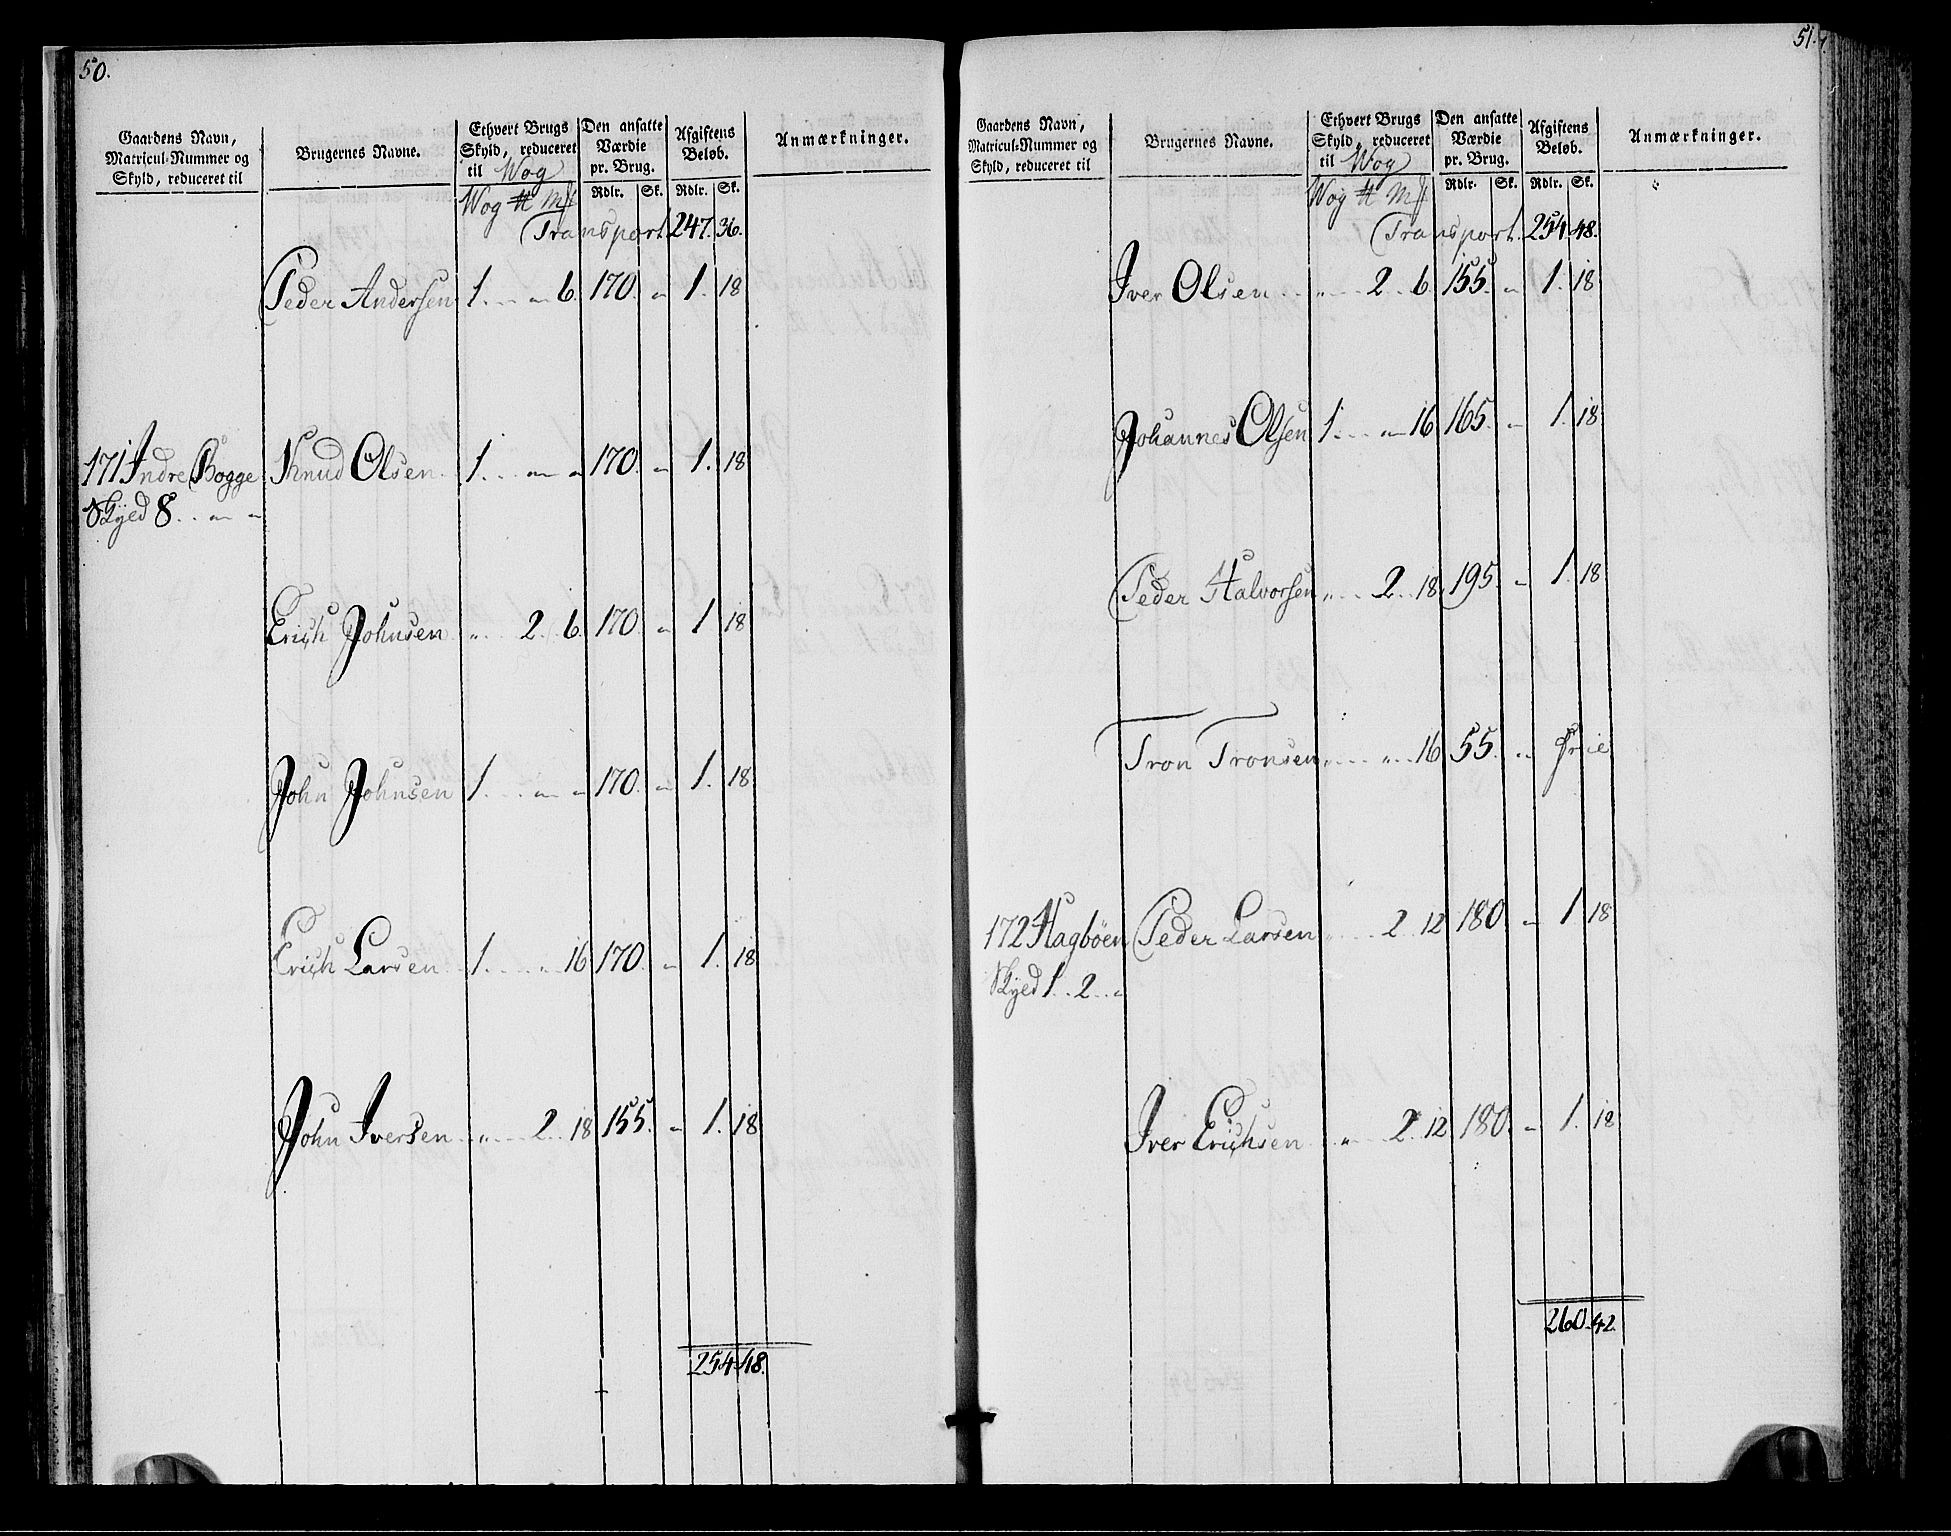 50.
Gaardens Navn, Matricul-Nummer og Skyld, reduceret til | Brugernes Navne. | Ethvert Brugs Skyld, reduceret til Wog | Den ansatte Værdie pr. Brug. | Afgiftens Beløb. | Anmærkninger.
Wog ℔ M𝔣 | Rdlr. | Sk. | Rdlr. | Sk.
Transport. 247. 36.
Peder Andersen 1. .. „ 6. 170. „ 1. 18
171 Indre Bogge Knud Olsen 1. .. „ „ 170. „ 1. 18
Skyld 8. .. „ „
Erich Johnsen „ .. 2. 6. 170. „ 1 18
John Johnsen 1. .. „ „ 170. „ 1. 18
Erich Larsen 1. .. „ 16 170. „ 1. 18
John Iversen „ .. 2. 18 155. „ 1. 18
254. 48.
51.
Gaardens Navn, Matricul-Nummer og Skyld, reduceret til | Brugernes Navne. | Ethvert Brugs Skyld, reduceret til Wog | Den ansatte Værdie pr. Brug. | Afgiftens Beløb. | Anmærkninger.
Wog ℔ M𝔣 | Rdlr. | Sk. | Rdlr. | Sk.
Transport. 254 48.
Iver Olsen „ .. 2.. 6. 155. „ 1. 18
Johannes Olsen 1. .. „ 16 165. „ 1. 18
Peder Halvorsen „ .. 2.. 18. 195. „ 1. 18
Tron Tronsen „ .. „ .. 16 55. „ frie
172 Hagbøen Peder Larsen „ .. 2 12 180 „ 1 18
Skyld 1.. 2.. „
Iver Erichsen „ .. 2. 12 180. „ 1. 18
260. 42.